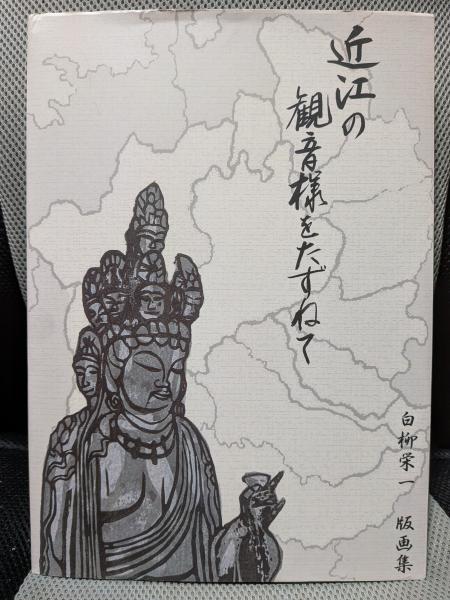 近江の
観音様をたずねて
白柳栄一 版画集